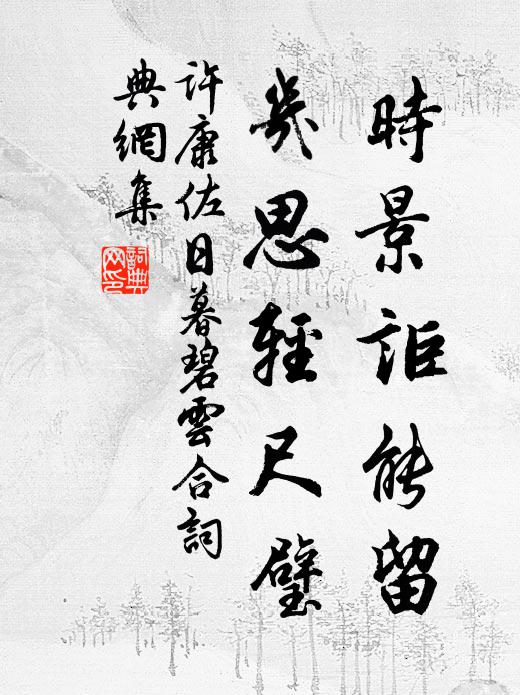 時景詎能留
幾思輕尺璧
許康佐日暮碧雲合詞
典網集
詞典網印